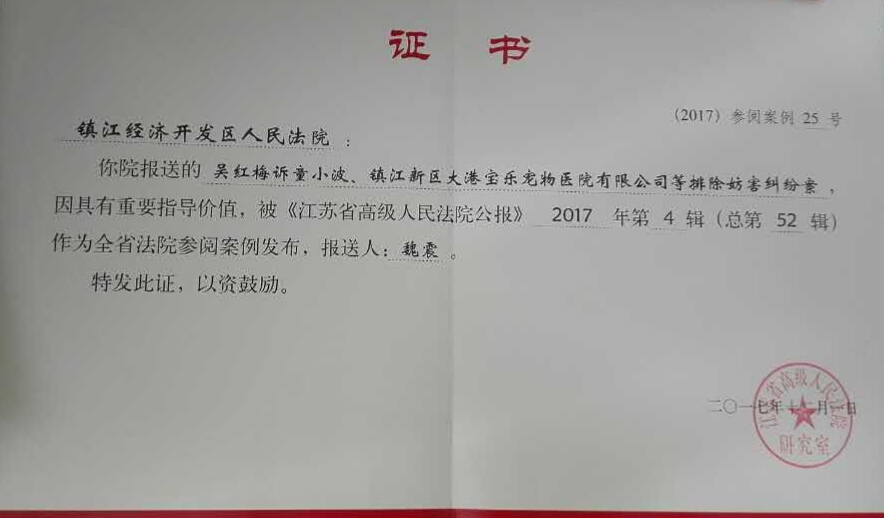 证 书
(2017)参阅案例 25 号
镇江经济开发区人民法院：
你院报送的 吴红梅诉童小波、镇江新区大港宝乐宠物医院有限公司等排除妨害纠纷案，
因具有重要指导价值，被《江苏省高级人民法院公报》 2017 年第 4 辑（总第 52 辑）
作为全省法院参阅案例发布，报送人：魏震。
特发此证，以资鼓励。
江苏省高级人民法院
二〇一七年十二月 日
研究室